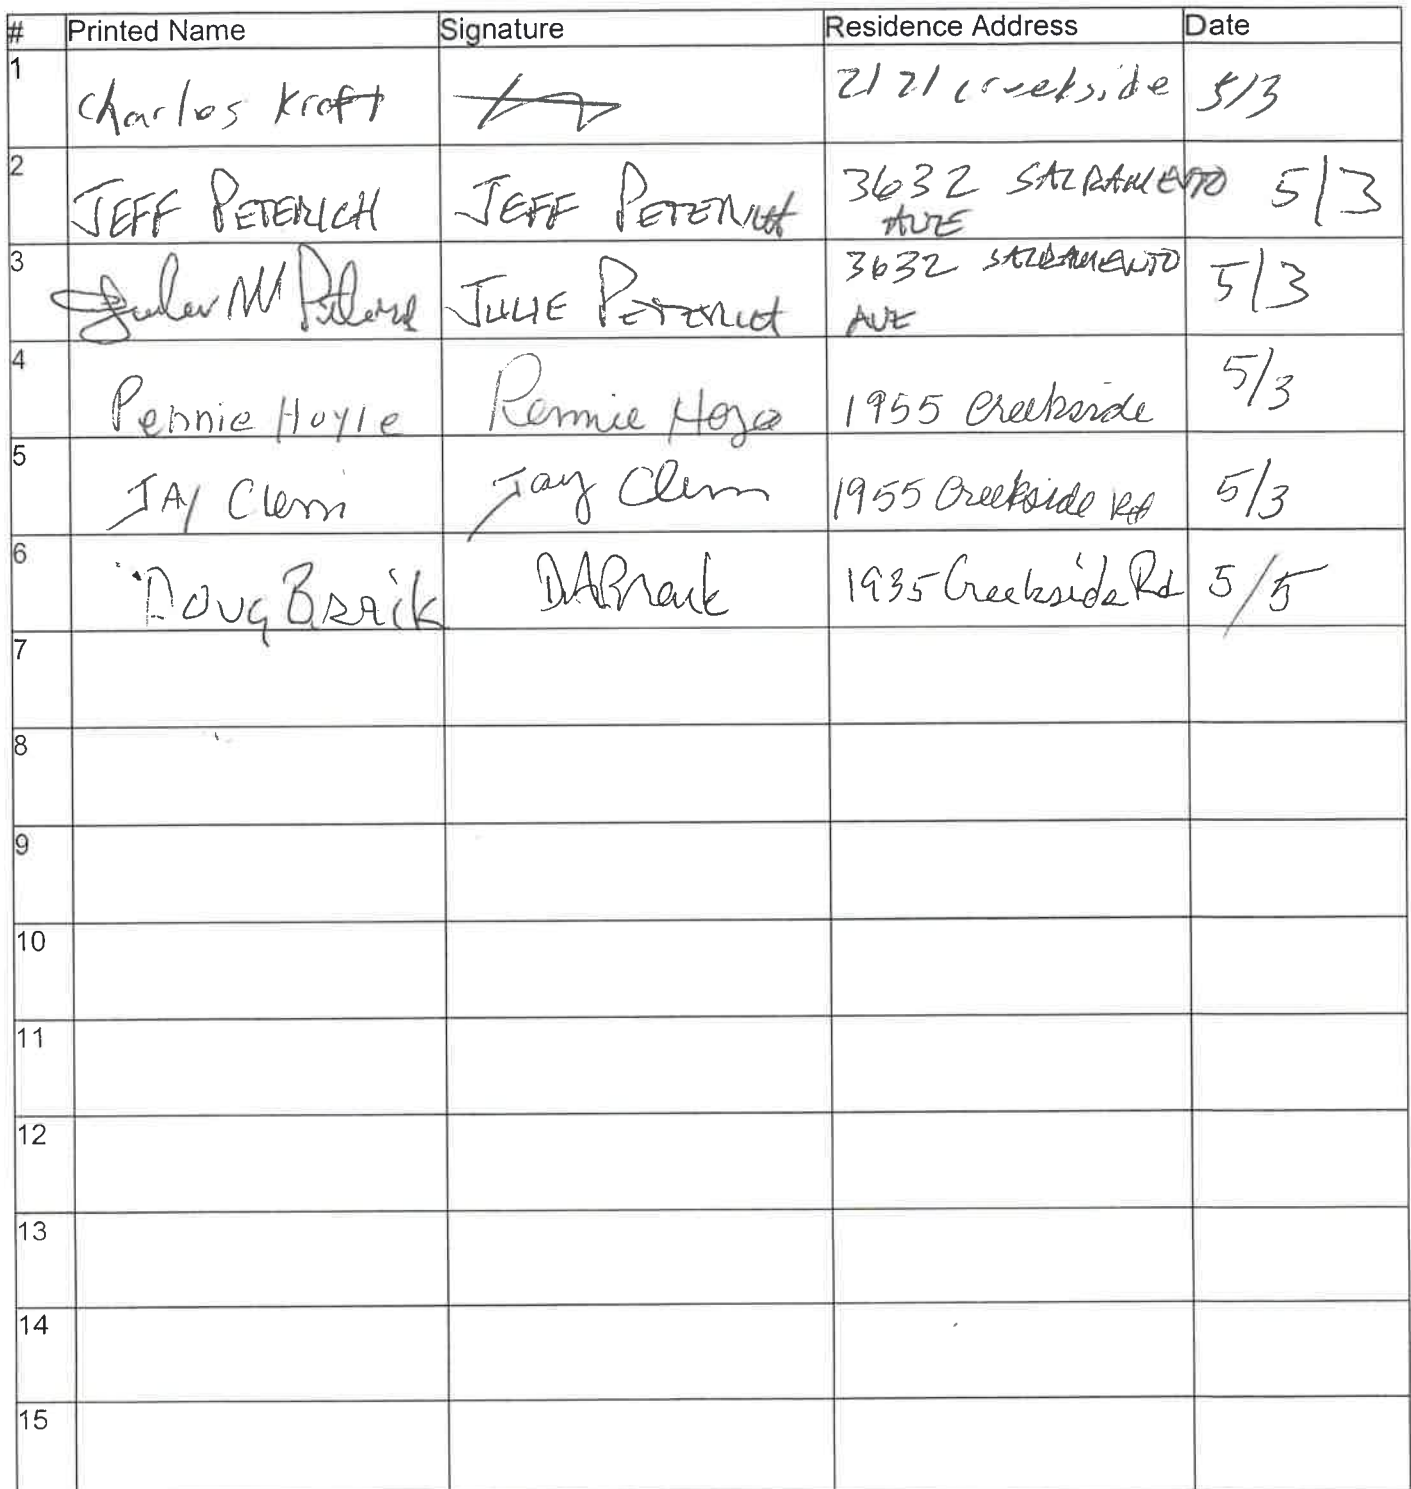 # Printed Name Signature Residence Address Date
1 Charles Kroft 2121 creekside 5/3
2 JEFF PETERICH JEFF PETERICH 3632 SACRAMENTO AVE 5/3
3 JULIE PETERICH 3632 SACRAMENTO AVE 5/3
4 Pennie Hoyle 1955 Creekside 5/3
5 JAY Clem Jay Clem 1955 Creekside Rd 5/3
6 Doug 1935 Creekside Rd 5/5
7
8
9
10
11
12
13
14
15